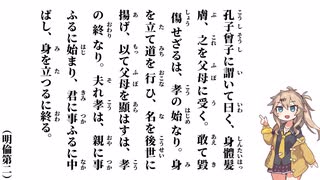 孔子曾子に謂いて曰く、身體髮
膚、之を父母に受く。敢て毀
傷せざるは、孝の始なり。身
を立て道を行ひ、名を後世に
揚げ、以て父母を顯はすは、孝
の終なり。夫れ孝は、親に事
ふるに始まり、君に事ふるに中
ばし、身を立つるに終る。
（明倫第二）